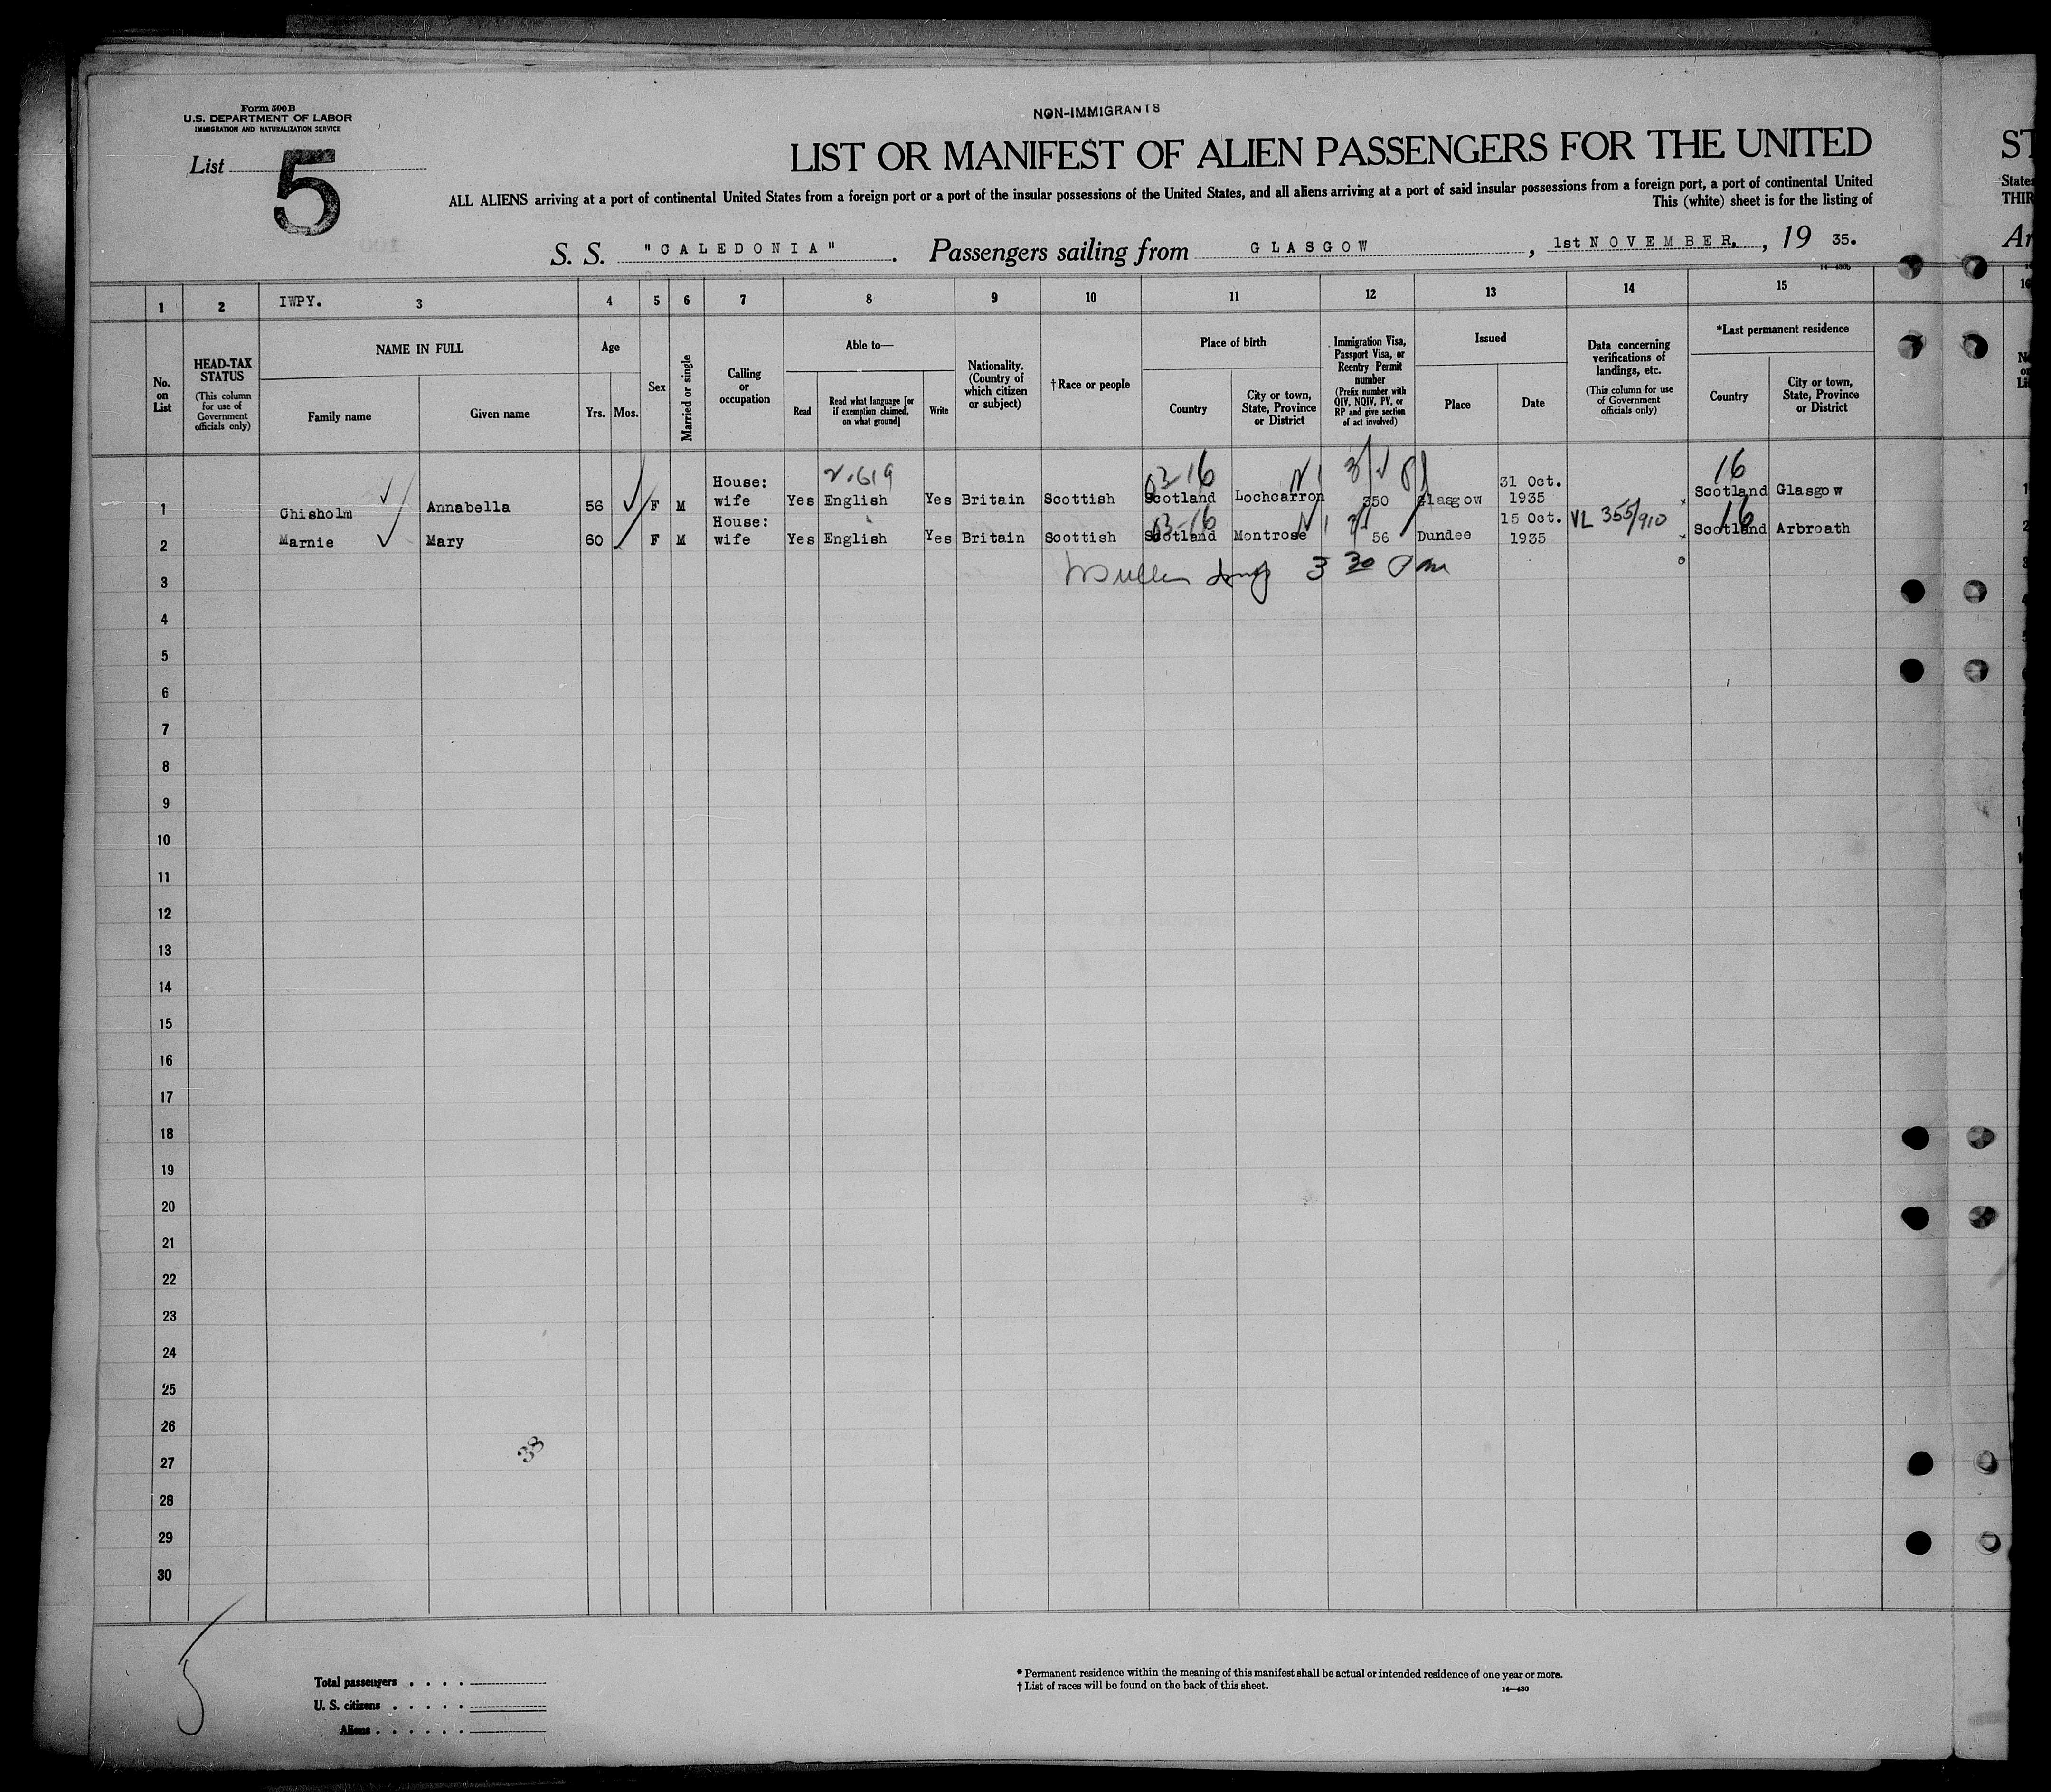 Form 500 B
U.S. DEPARTMENT OF LABOR
IMMIGRATION AND NATURALIZATION SERVICE
NON-IMMIGRANTS
List 5
LIST OR MANIFEST OF ALIEN PASSENGERS FOR THE UNITED
ST
ALL ALIENS arriving at a port of continental United States from a foreign port or a port of the insular possessions of the United States, and all aliens arriving at a port of said insular possessions from a foreign port, a port of continental United
States
This (white) sheet is for the listing of
THIR
S. S. "CALEDONIA". Passengers sailing from GLASGOW, 1st NOVEMBER, , 19 35.
Ar
1 2 IWPY. 3 4 5 6 7 8 9 10 11 12 13 14 15 16
No. on List
HEAD-TAX STATUS (This column for use of Government officials only)
NAME IN FULL
Family name
Given name
Age
Yrs. Mos.
Sex
Married or single
Calling or occupation
Able to—
Read
Read what language [or if exemption claimed, on what ground]
Write
Nationality. (Country of which citizen or subject)
†Race or people
Place of birth
Country
City or town, State, Province or District
Immigration Visa, Passport Visa, or Reentry Permit number (Prefix number with QIV, NQIV, PV, or RP and give section of act involved)
Issued
Place
Date
Data concerning verifications of landings, etc. (This column for use of Government officials only)
*Last permanent residence
Country
City or town, State, Province or District
03-16 16
1 Chisholm Annabella 56 F M House: wife Yes English Yes Britain Scottish Scotland Lochcarron 350 Glasgow 31 Oct. 1935 Scotland Glasgow
03-16 16
2 Marnie Mary 60 F M House: wife Yes English Yes Britain Scottish Scotland Montrose 56 Dundee 15 Oct. 1935 VL 355/910 Scotland Arbroath
3 3 30 Pm
4
5
6
7
8
9
10
11
12
13
14
15
16
17
18
19
20
21
22
23
24
25
26
27
28
29
30
38
5
Total passengers . . . .
U. S. citizens . . . . .
Aliens . . . . . .
* Permanent residence within the meaning of this manifest shall be actual or intended residence of one year or more.
† List of races will be found on the back of this sheet.
14—430